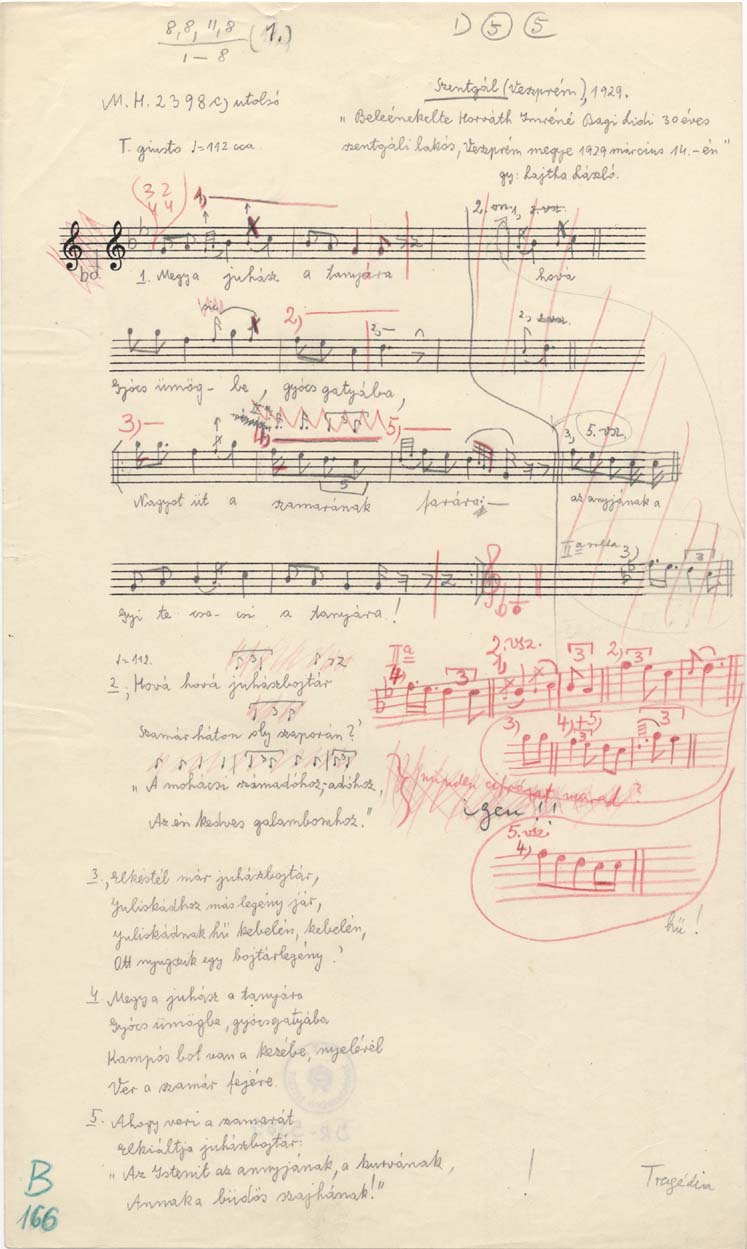 8, 8, 11, 8 (1.)
1 – 8
1) 5 5
M. H. 2398 c) utolsó
Szentgál (Veszprém), 1929.
T. giusto ♩=112 cca
"Beleénekelte Horváth Imréné Bagi Lidi 30 éves
szentgáli lakós, Veszprém megye 1929 március 14.-én"
gy: Lajtha László.
3 2
4 4
1,
2. 
1. Megya juhász a tanyára
hová
sic
2,
2,
Gyócs ümög- be, gyócsgatyába,
3,
4,
5,
3, 5. vsz.
5
Nagyot üt a szamarának farára:
az anyjának a
IIa volta 3)
3
Gyi te csa- csi a tanyára!
♩=112.
IIa
4)
3
2. vsz.
1,
3
2)
3
2., Hová hová juhászbojtár
Szamárháton oly szaporán?
3)
4)+5)
3
3
"A mohácsi számadóhoz, -adóhoz,
Az én kedves galambomhoz."
minden cifrázat marad?
igen!!
5. vsz
4)
3., Elkéstél már juhászbojtár,
Juliskádhoz más legény jár,
Juliskádnak hű kebelén, kebelén,
Ott nyugszik egy bojtárlegény.
hű!
4. Megya juhász a tanyára
Gyócs ümögbe, gyócsgatyába
Kampós bot van a kezébe, nyeléről
Ver a szamár fejére.
5. Ahogy veri a szamarát
Elkiáltja juhászbojtár:
"Az Istenit az annyjának, a kurvának,
Annak a büdös szajhának!"
!
Tragédia
B
166